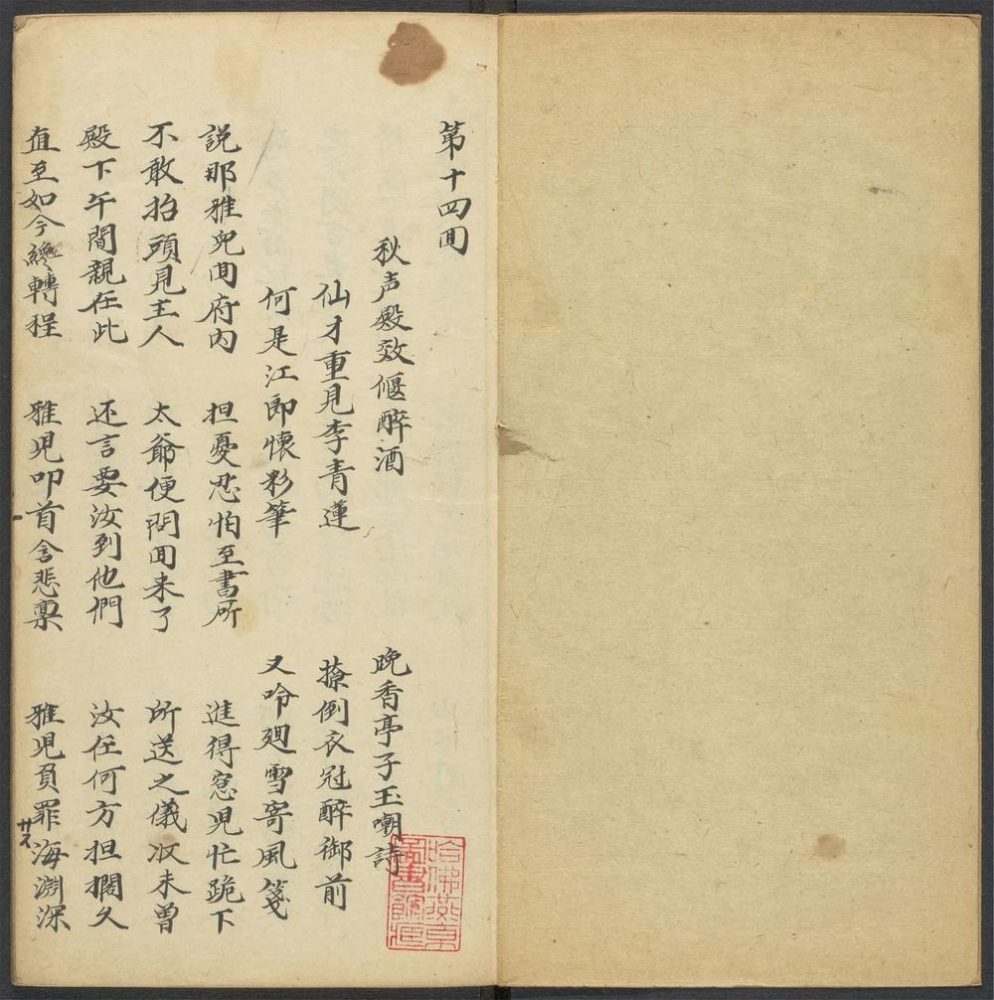 第十四囬
秋声殿效偃醉酒 晚香亭子玉嘲詩
仙才重見李青蓮 撩倒衣冠醉御前
何是江郎懷彩筆 又吟廻雪寄風箋
説那雅兒囬府内 担憂忍怕至書所 進得窓兒忙跪下
不敢抬頭見主人 太爺便問囬来了 所送之儀収未曽
殿下午間親在此 还言要汝到他們 汝在何方担擱久
直至如今纔轉程 雅児叩首含悲禀 雅児負罪海淵深
哈佛燕京
圖書館藏